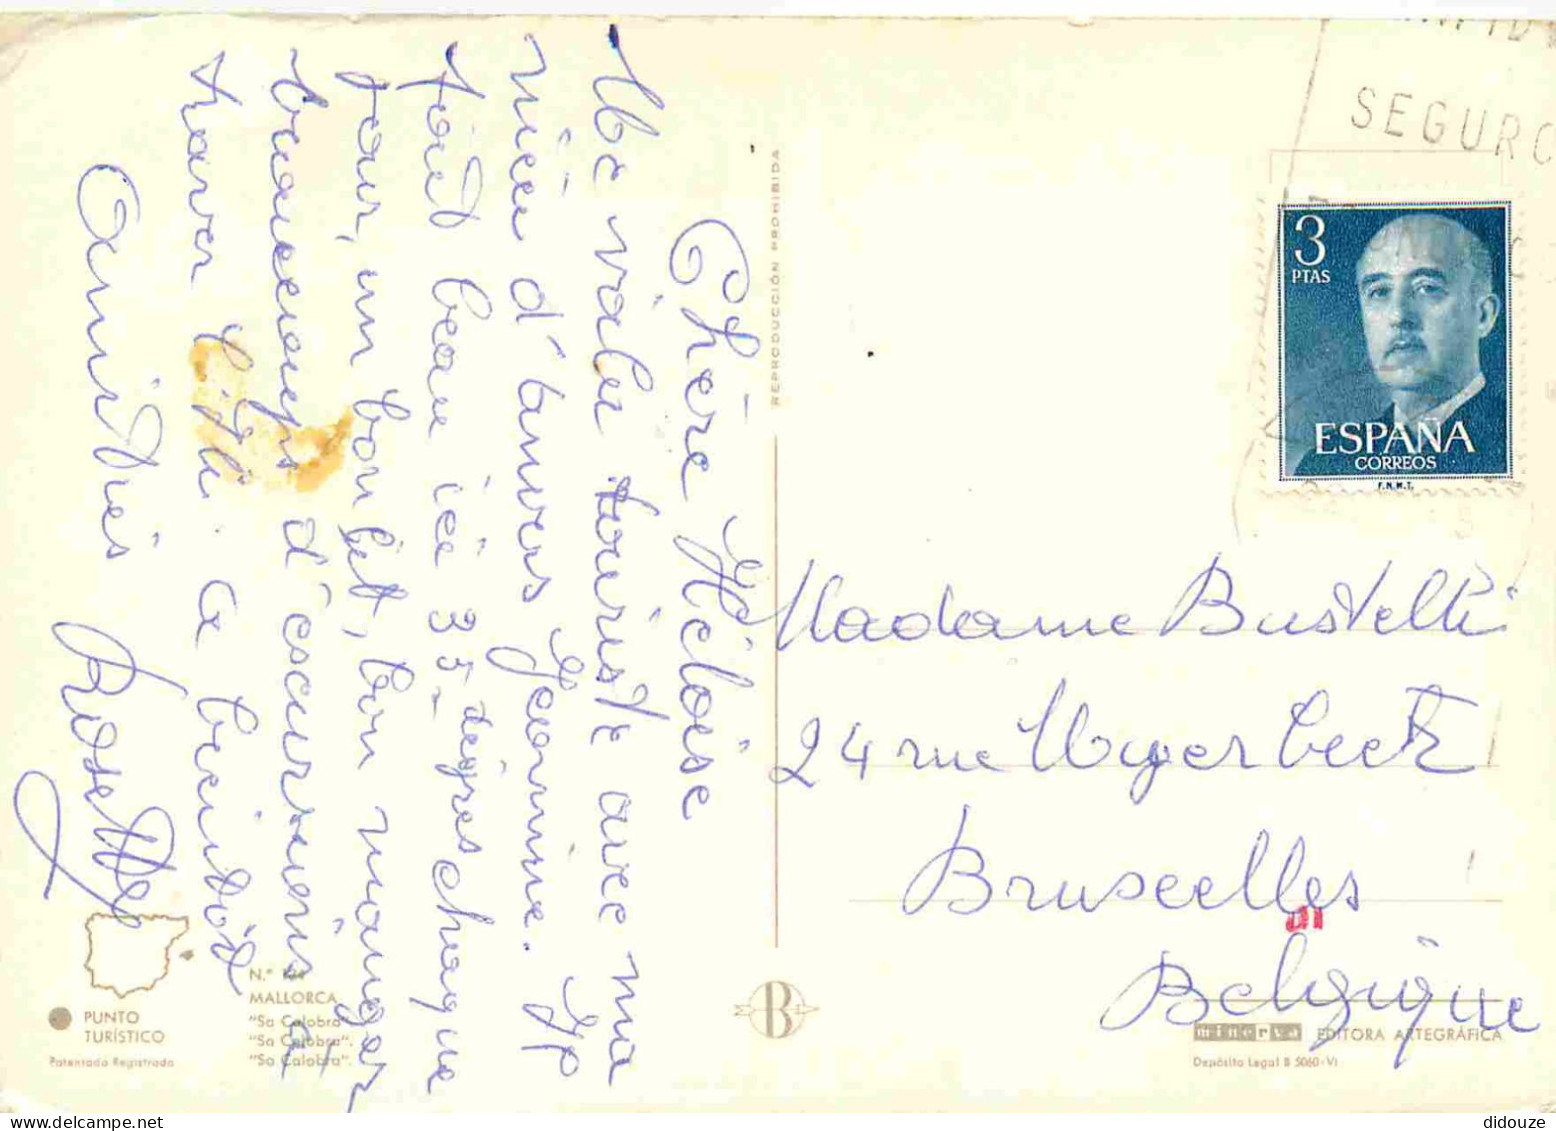 Chère Héloïse
Me voila touriste avec ma
nièce d'anvers Jeannine. Il
fait beau ici 35 degres chaque
jour, un bon lit, bon manger
beaucoup d'escursions a
traver l'ile. a bientôt
Amitiés
Rosette
REPRODUCCIÓN PROHIBIDA
SEGURO
3
PTAS
ESPAÑA
CORREOS
F.N.M.T.
Madame Bustelli
24 rue Meyerbeer
Bruxelles
Belgique
PUNTO
TURÍSTICO
Patentado Registrado
N.º
MALLORCA
"Sa Calobra".
"Sa Calobra".
"Sa Calobra".
B
minerva EDITORA ARTEGRÁFICA
Depósito Legal B 5060-VI
didouze